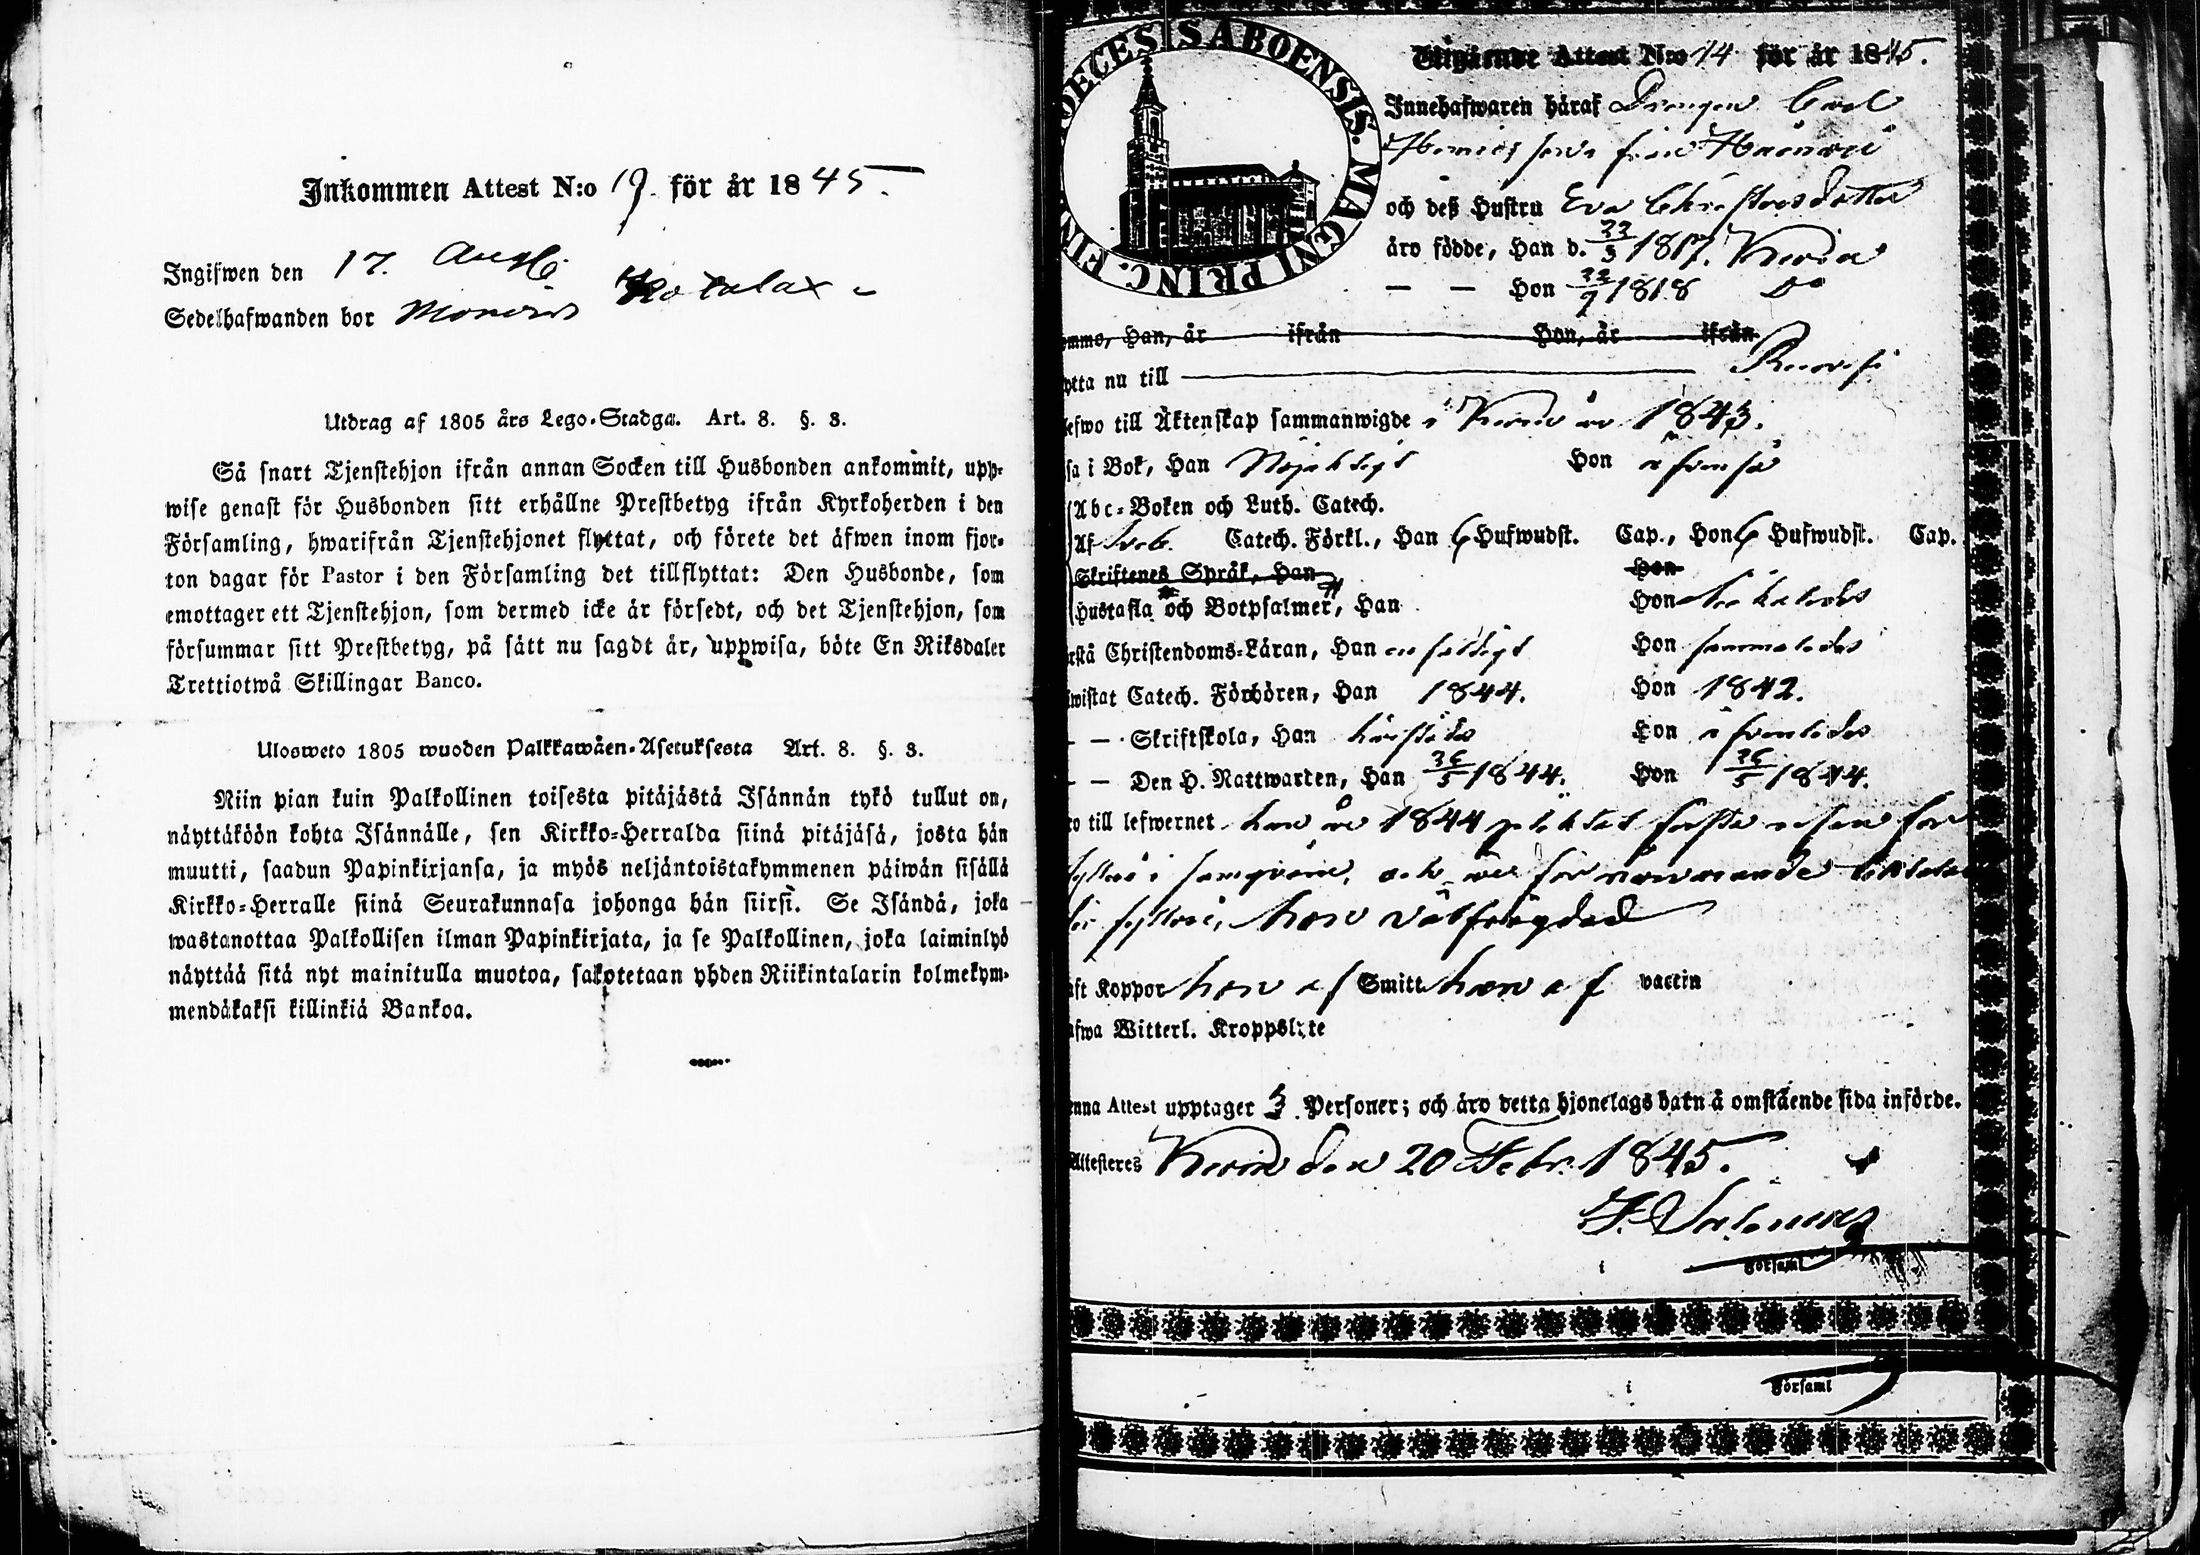 Inkommen Attest N:o 19. för år 1845.
Ingifwen den 17. Aug.
Sedelhafwanden bor Kotalax
Utdrag af 1805 års Lego-Stadga. Art. 8. §. 3.
Så snart Tjenstehjon ifrån annan Socken till Husbonden ankommit, upp-
wise genast för Husbonden sitt erhållne Prestbetyg ifrån Kyrkoherden i den
Församling, hwarifrån Tjenstehjonet flyttat, och förete det äfwen inom fjor-
ton dagar för Pastor i den Församling det tillflyttat: Den Husbonde, som
emottager ett Tjenstehjon, som dermed icke är försedt, och det Tjenstehjon, som
försummar sitt Prestbetyg, på sätt nu sagdt är, uppwisa, böte En Riksdaler
Trettiotwå Skillingar Banco.
Ulosweto 1805 wuoden Palkkawäen-Asetuksesta Art. 8. §. 3.
Niin pian kuin Palkollinen toisesta pitäjästä Isännän tykö tullut on,
näyttäköön kohta Isännälle, sen Kirkko-Herralda siinä pitäjäsä, josta hän
muutti, saadun Papinkirjansa, ja myös neljäntoistakymmenen päiwän sisällä
Kirkko-Herralle siinä Seurakunnasa johonga hän siirsi. Se Isändä, joka
wastanottaa Palkollisen ilman Papinkirjata, ja se Palkollinen, joka laiminlyö
näyttää sitä nyt mainitulla muotoa, sakotetaan yhden Riikintalarin kolmekym-
mendäkaksi killinkiä Bankoa.
DIOECES IS ABOENSIS. MAGNI PRINC. FIN
Utgående Attest N:o 14 för år 1845.
Innehafwaren häraf Drengen Carl
Henricsson från
och deß Hustru Eva Christersdotter
äro födde, Han d. 22/3 1817.
— — Hon 22/9 1818 Do
ommo, Han, år ifrån Hon, år ifrån
ytta nu till
lefwo till Äktenskap sammanwigde i år 1843.
sa i Bok, Han Nöjaktigt Hon äfvenså
Abc-Boken och Luth. Catech.
Af Sveb. Catech. Förkl., Han 6 Hufwudst. Cap., Hon 6 Hufwudst. Cap.
Skriftenes Språk, Han Hon
Hustafla och Botpsalmer, Han Hon
rstå Christendoms-Läran, Han enfaldigt Hon sammaledes
wistat Catech. Förhören, Han 1844. Hon 1842.
— — Skriftskola, Han härstädes Hon äfvenledes
— — Den H. Nattwarden, Han 26/5 1844. Hon 26/5 1844.
ro till lefwernet han år 1844 pliktat första resan för
fylleri i samqväm, och för närvarande
för fylleri, hon välfrägdad
ft Koppor han af Smitt hon af vaccin
afwa Witterl. Kroppslyte
enna Attest upptager 3 Personer; och äro detta hjonelags barn å omstående sida införde.
Attesteres den 20 Febr. 1845.
i Församl
i Församl